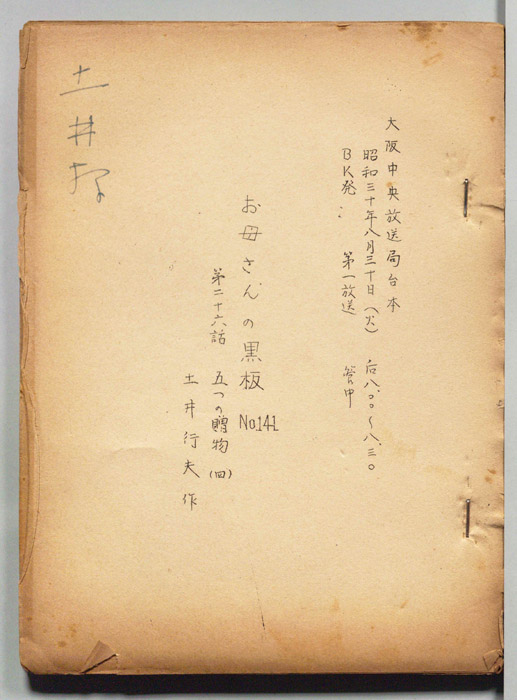 大阪中央放送局台本
昭和三十年八月三十日（火） 后八.〇〇〜八.三〇
BK発 第一放送 管中
お母さんの黒板 No.141
第二十六話 五つの贈物（四）
土井行夫 作
土井